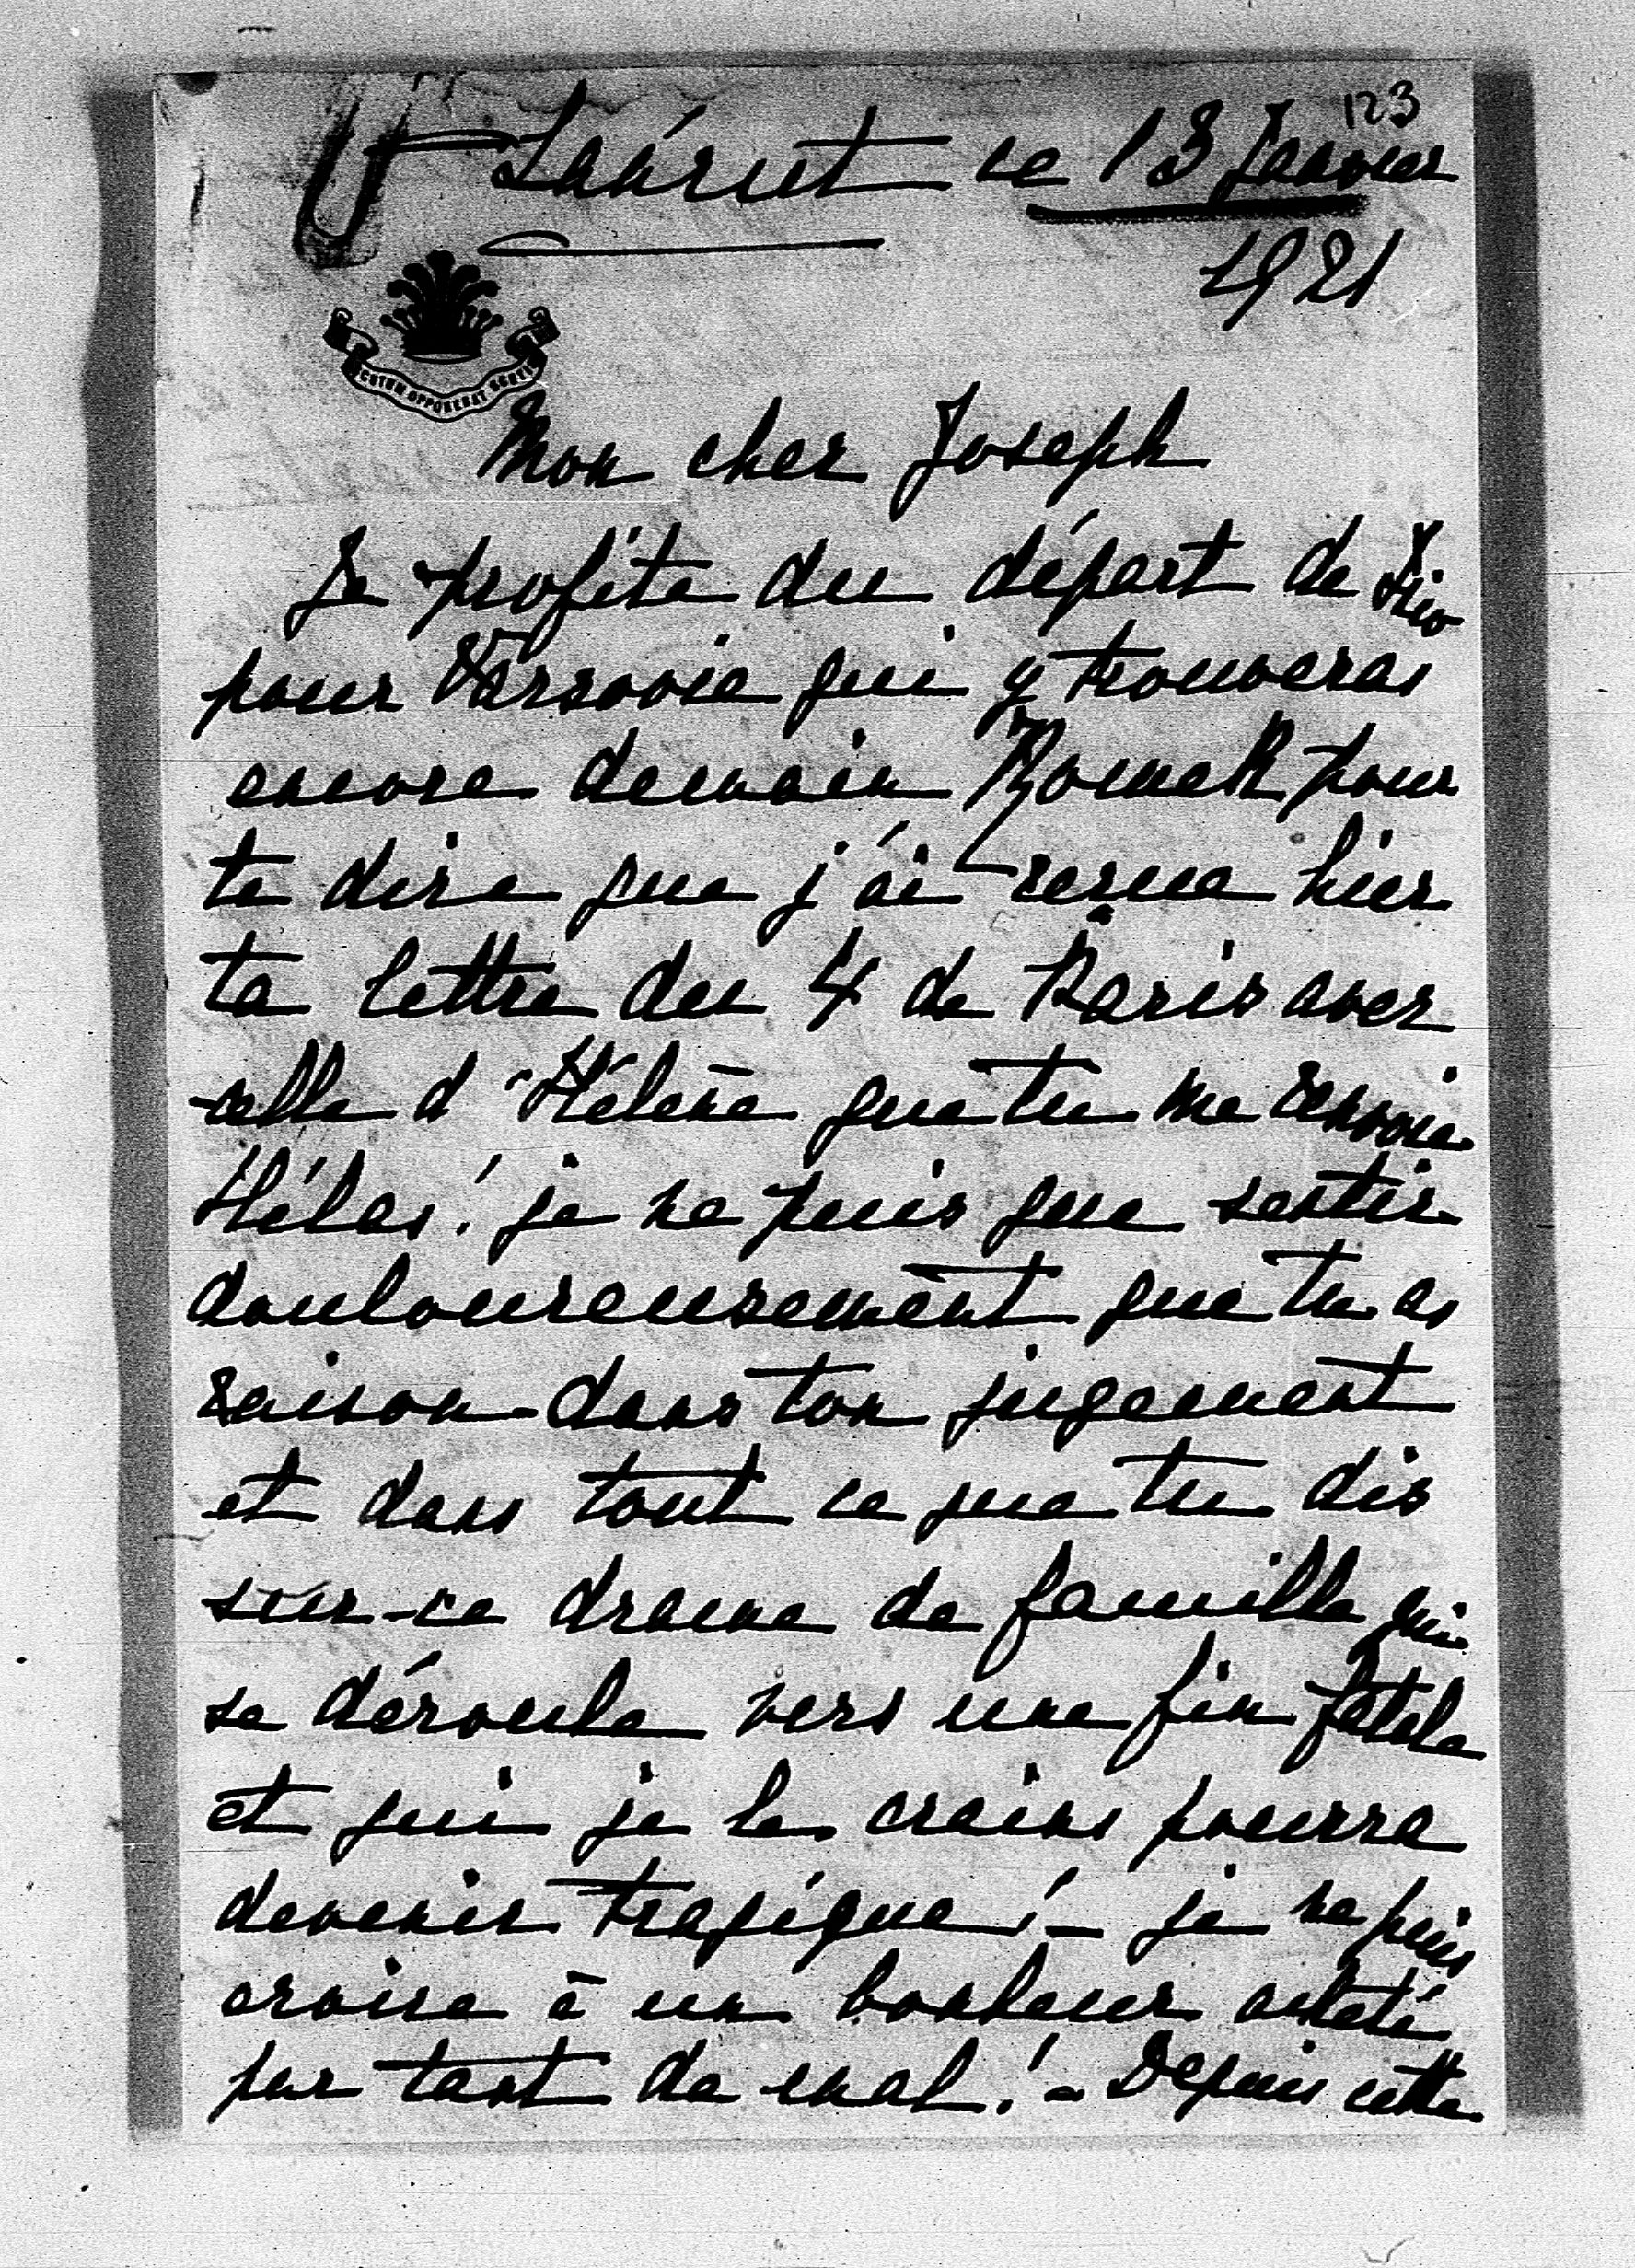 123
Łańcut ce 13 Janvier
1921
SCUTUM OPPONEBAT SCUTIS
Mon cher Joseph
Je profite du départ de
pour Varsovie qui y trouveras
encore demain Romek pour
te dire que j'ai reçue hier
ta lettre du 4 de Paris avec
celle d'Hélène que tu me renvoie
Hélas! je ne puis que sentir
douloureusement que tu as
raison dans ton jugement
et dans tout ce que tu dis
sur ce drame de famille qui
se déroule vers une fin fatale
et qui je le crains pourra
devenir tragique! – je ne puis
croire à un bonheur acheté
par tant de mal! – Depuis cette